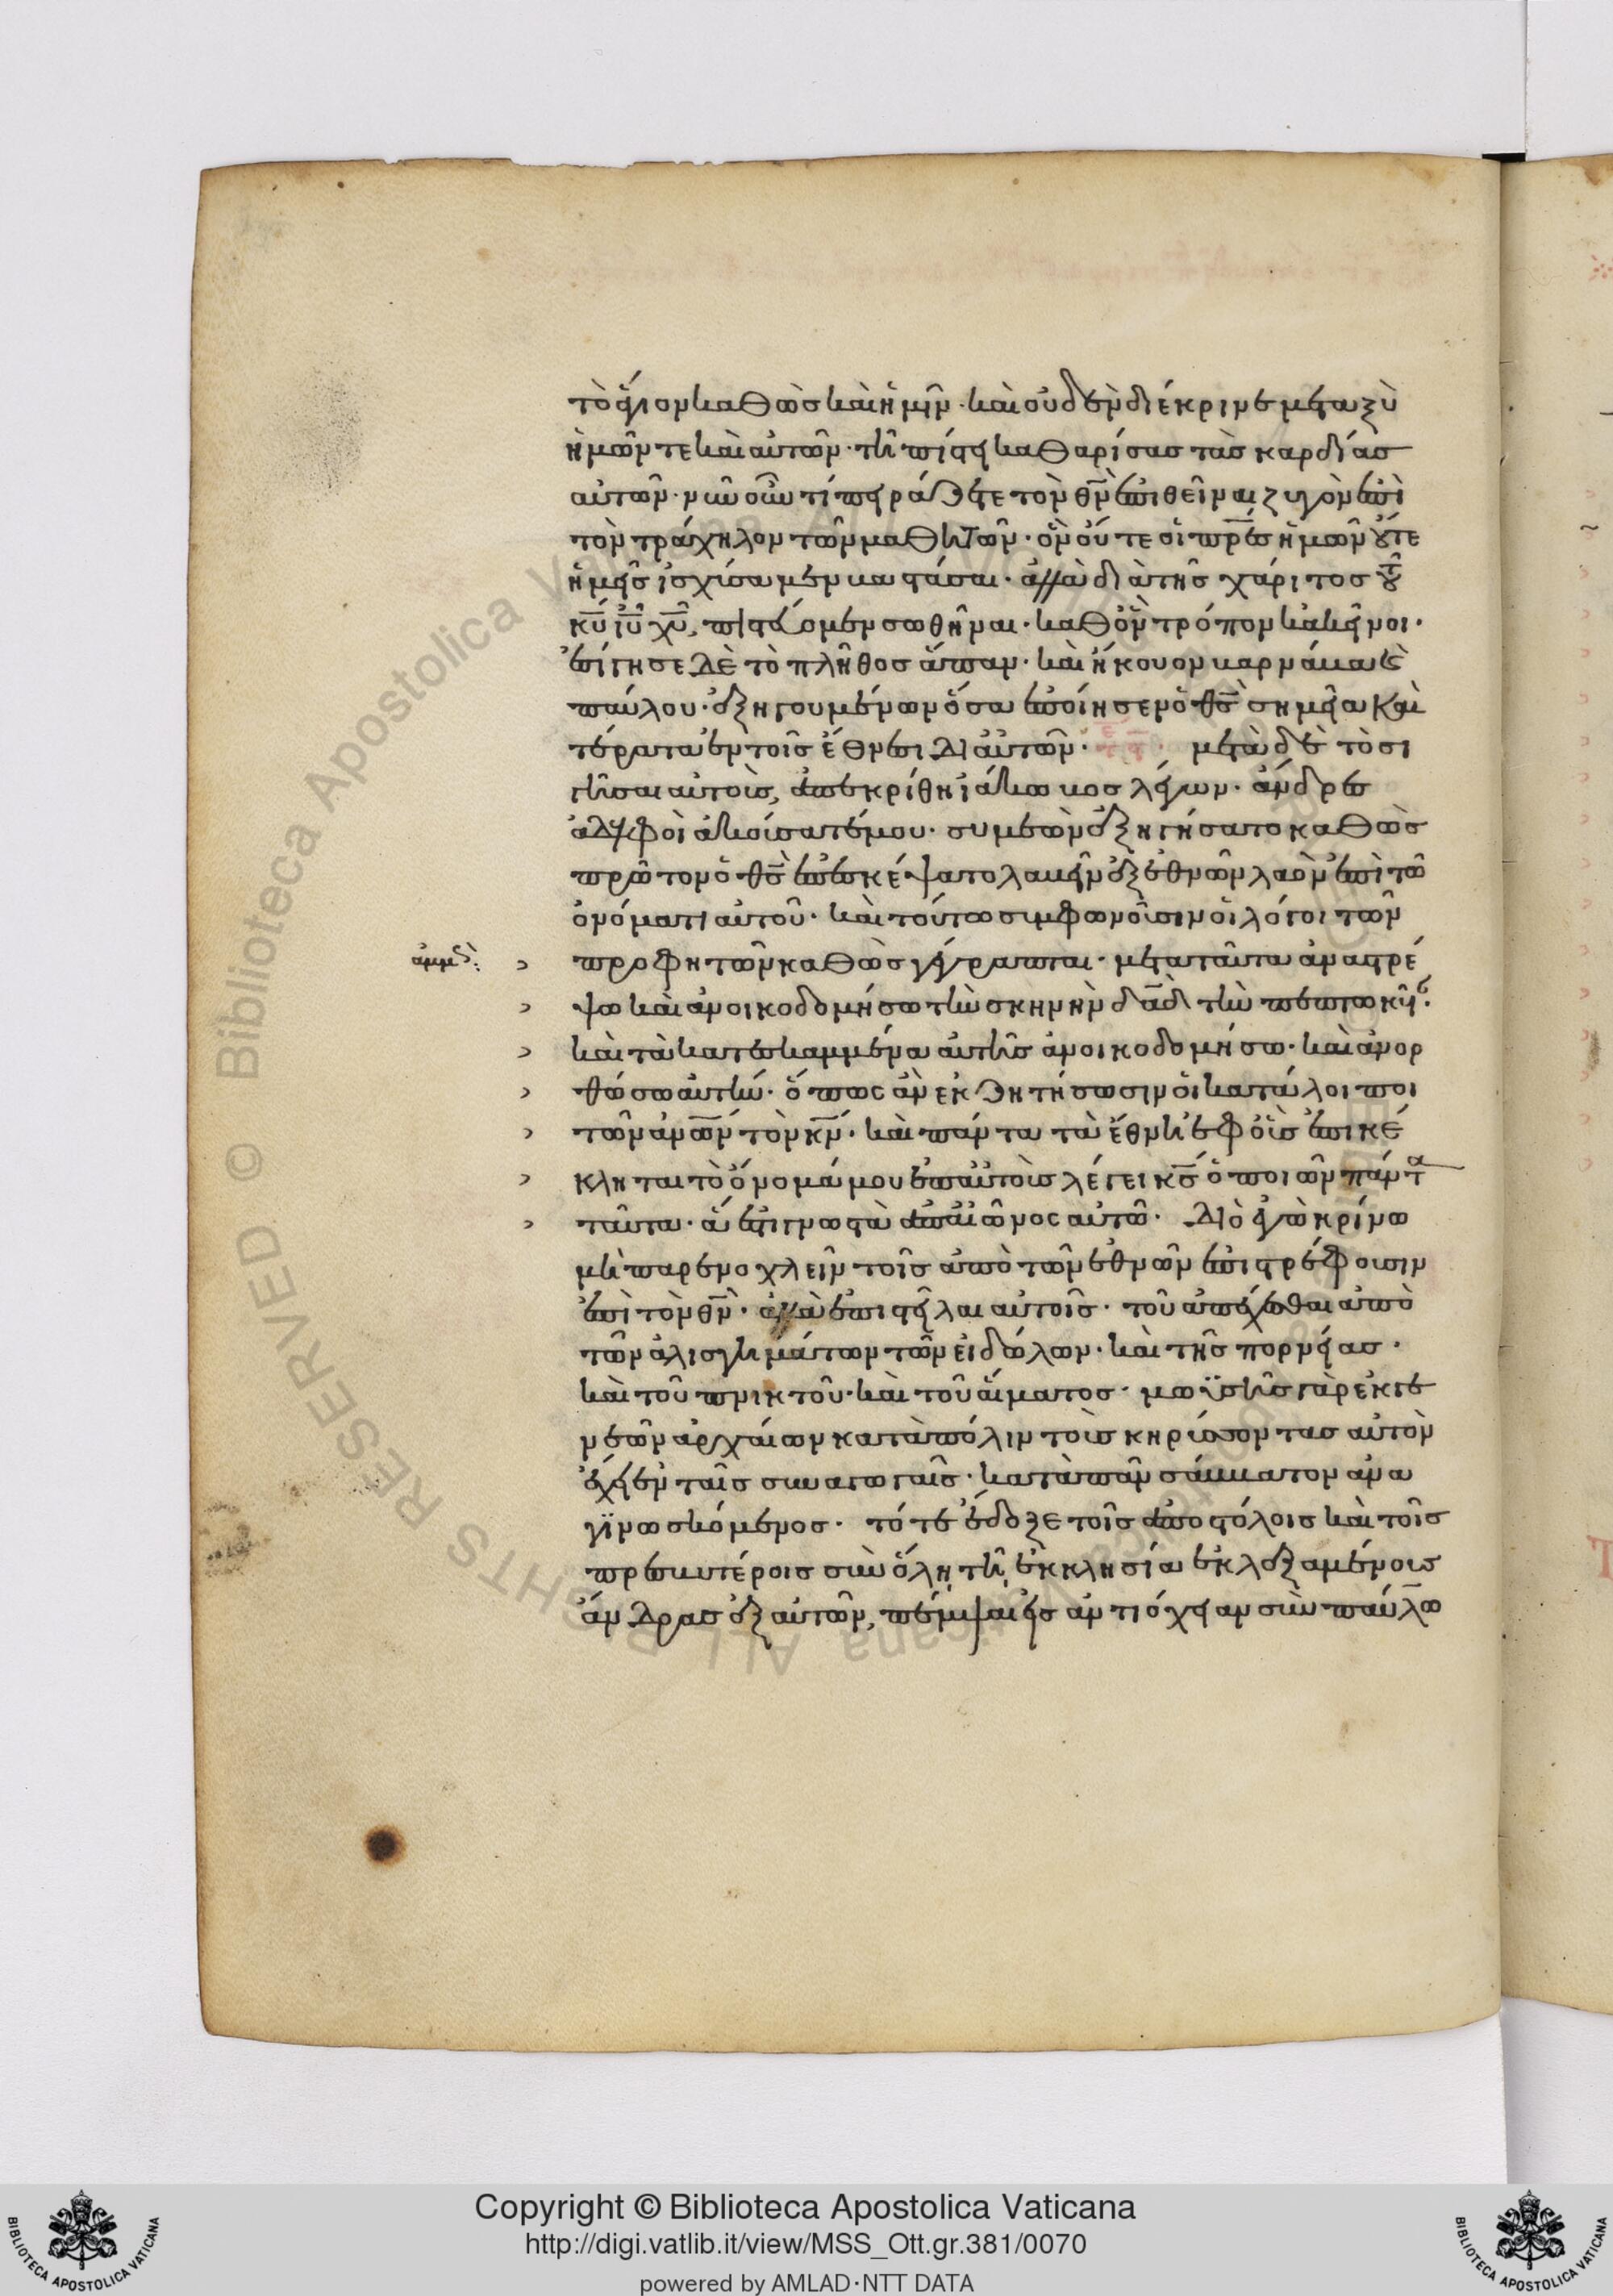 τὸ ἅγιον καθὼς καὶ ἡμῖν· καὶ οὐδὲν διέκρινε μεταξὺ
ἡμῶν τε καὶ αὐτῶν· τῆ πίστει καθαρίσας τὰς καρδίας
αὐτῶν· νῦν οὖν τί πειράζετε τὸν θν̅ ἐπιθεῖναι ζυγὸν ἐπὶ
τὸν τράχηλον τῶν μαθητῶν· ὃν οὔτε οἱ πρ̅ες ἡμῶν οὔτε
ἡμεῖς ἰσχύσαμεν βαστάσαι· ἀλλὰ διὰ τῆς χάριτος τοῦ
κυ̅ ιυ̅ χυ̅, πιστεύομεν σωθῆναι· καθ ὃν τρόπον κακεῖνοι·
ἐσίγησε δὲ τὸ πλῆθος ἅπαν· καὶ ἤκουον βαρνάβα καὶ
παύλου· ἐξηγουμένων ὅσα ἐποίησεν ὁ θς̅ σημεῖα καὶ
τέρατα ἐν τοῖς ἔθνεσι δι αὐτῶν· μετὰ δὲ τὸ σι
γῆσαι αὐτοὺς, ἀπεκρίθη ἰάκωβος λέγων· ἄνδρες
ἀδελφοὶ ἀκούσατέ μου· συμεὼν ἐξηγήσατο καθὼς
πρῶτον ὁ θς̅ ἐπεσκέψατο λαβεῖν ἐξ ἐθνῶν λαὸν ἐπὶ τῶ
ὀνόματι αὐτοῦ· καὶ τούτω συμφωνοῦσιν οἱ λόγοι τῶν
ἀμμὼ:
προφητῶν καθὼς γέγραπται· μετα ταῦτα ἀναστρέ
ψω καὶ ἀνοικοδομήσω τὴν σκηνὴν δα̅δ τὴν πεπτωκυῖα·
καὶ τὰ κατεσκαμμένα αὐτῆς ἀνοικοδομήσω· καὶ ἀνορ
θώσω αὐτήν· ὅπως ἂν ἐκζητήσωσιν οἱ κατάλοιποι
τῶν αν̅ων τὸν κν̅· καὶ πάντα τὰ ἔθνη ἐφ οὓς ἐπικέ
κληται τὸ ὄνομά μου ἐπ αὐτοὺς λέγει κς̅ ὁ ποιῶν πάντα
ταῦτα· ἅ ἐστι γνωστὰ ἀπ αἰῶνος αὐτῶ· Διὸ ἐγὼ κρίνω
μὴ παρενοχλεῖν τοῖς ἀπὸ τῶν ἐθνῶν ἐπιστρέφουσιν
ἐπὶ τὸν θν̅· ἀλλὰ ἐπιστεῖλαι αὐτοῖς· τοῦ ἀπέχεσθαι ἀπὸ
τῶν ἁλισγημάτων τῶν εἰδώλων· καὶ τῆς πορνείας·
καὶ τοῦ πνικτοῦ· καὶ τοῦ αἵματος· μωϋσῆς γὰρ ἐκ γε
νεῶν ἀρχαίων κατὰ πόλιν τοὺς κηρύσσοντας αὐτὸν
ἔχει ἐν ταῖς συναγωγαῖς· κατὰ πᾶν σάββατον ἀνα
γινωσκόμενος· τότε ἔδοξε τοῖς ἀποστόλοις καὶ τοῖς
πρεσβυτέροις σὺν ὅλη τῆ ἐκκλησία ἐκλεξαμένους
ἄνδρας ἐξ αὐτῶν, πέμψαι εἰς ἀντιόχειαν σὺν παύλω
Copyright © Biblioteca Apostolica Vaticana
http://digi.vatlib.it/view/MSS_Ott.gr.381/0070
powered by AMLAD·NTT DATA